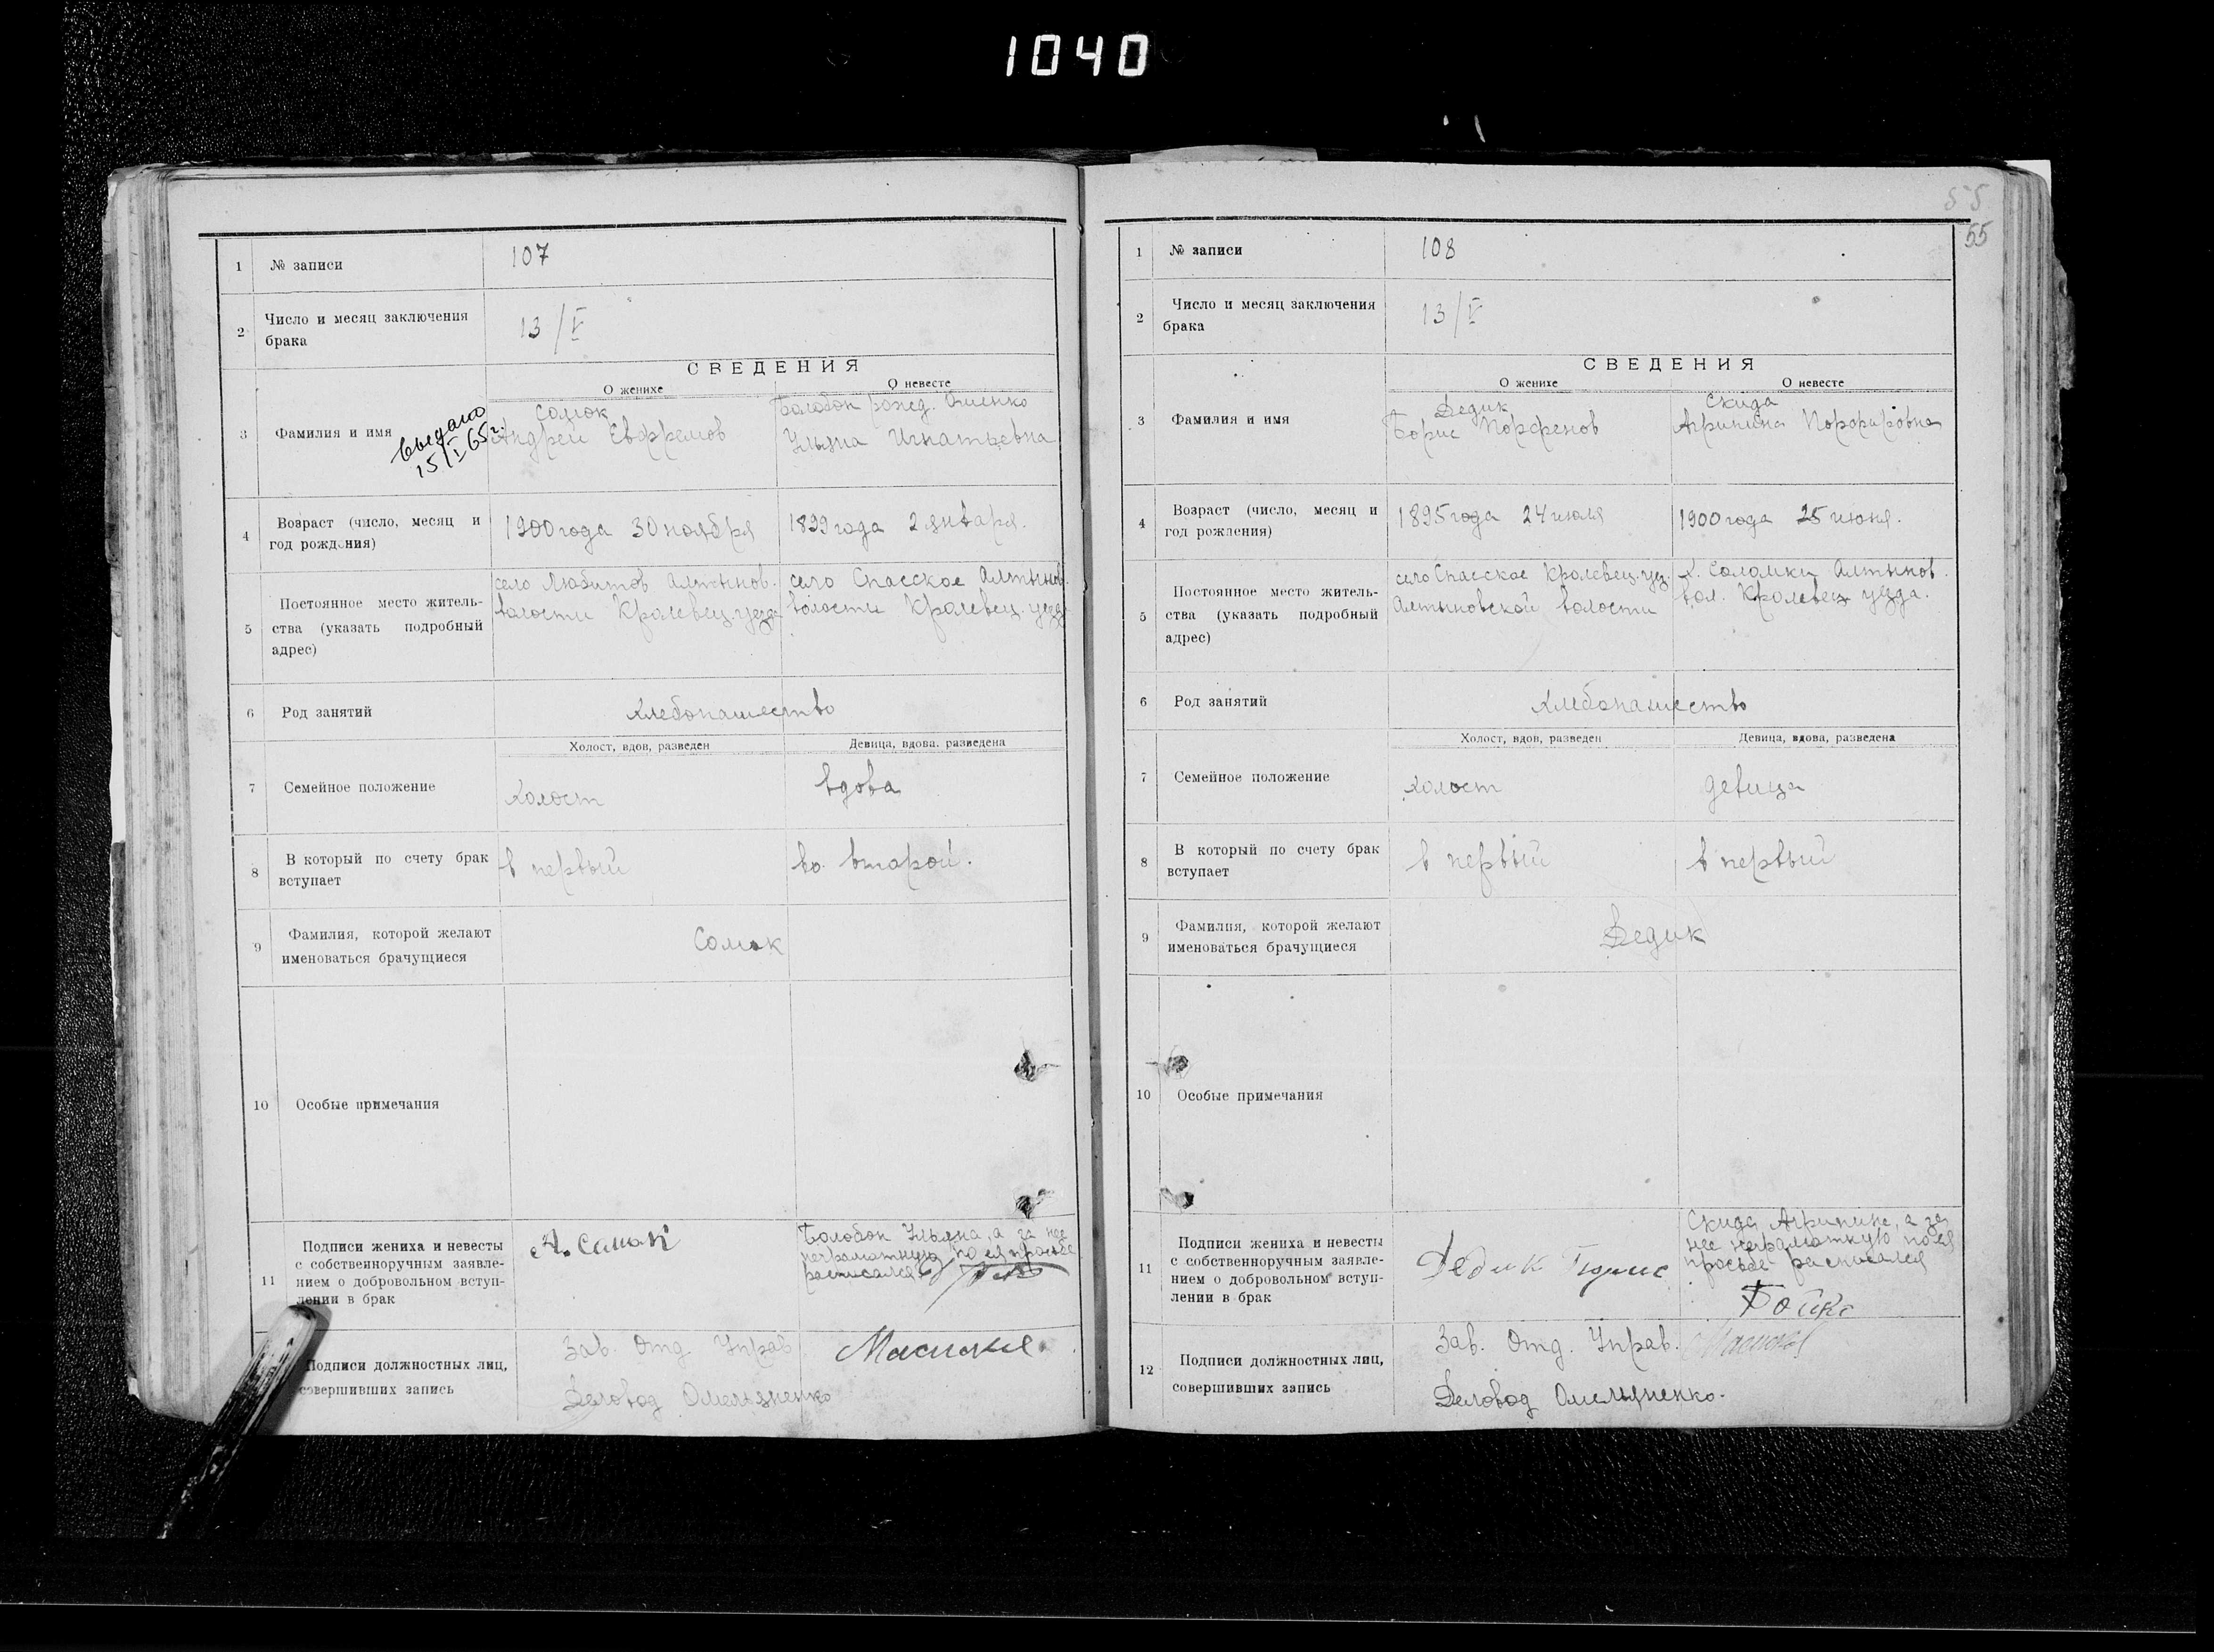 1040
1 № записи 107
2 Число и месяц заключения
брака
13/V
СВЕДЕНИЯ
О женихе О невесте
3 Фамилия и имя
15/I 65 г.
Сомок
Андрей Евфремов
Болобон рожед.
Ульяна Игнатьевна
4 Возраст (число, месяц и
год рождения)
1900 года 30 ноября
1899 года 2 января.
5 Постоянное место житель-
ства (указать подробный
адрес)
село Любитов Алтынов.
волости Кролевец. уезда
село Спасское Алтынов.
волости Кролевец. уезда
6 Род занятий Хлебопашество
Холост, вдов, разведен Девица, вдова. разведена
7 Семейное положение холост вдова
8 В который по счету брак
вступает
в первый во второй.
9 Фамилия, которой желают
именоваться брачущиеся
Сомок
10 Особые примечания
11 Подписи жениха и невесты
с собственноручным заявле-
нием о добровольном вступ-
лении в брак
А. Самок
Болобон Ульяна, а за нее
неграмотную по ея просьбе
расписался
Подписи должностных лиц,
совершивших запись
Зав. Отд. Управ.
Деловод Омельяненко
55
55
1 № записи 108
2 Число и месяц заключения
брака
13/V
СВЕДЕНИЯ
О женихе О невесте
3 Фамилия и имя
Дедик
Борис Порфенов
Скида
Агрипина Порфировна
4 Возраст (число, месяц и
год рождения)
1895 года 24 июля
1900 года 25 июня.
5 Постоянное место житель-
ства (указать подробный
адрес)
село Спасское Кролевец. уез.
Алтыновской волости
х. Соломки Алтынов.
вол. Кролевец уезда.
6 Род занятий Хлебопашество
Холост, вдов, разведен Девица, вдова, разведена
7 Семейное положение холост девица
8 В который по счету брак
вступает
в первый в первый
9 Фамилия, которой желают
именоваться брачущиеся
Дедик
10 Особые примечания
11 Подписи жениха и невесты
с собственноручным заявле-
нием о добровольном вступ-
лении в брак
Дедик Борис
Скида Агрипина, а за
нее неграмотную по ея
просьбе расписался
Бойко
12 Подписи должностных лиц,
совершивших запись
Зав. Отд. Управ.
Деловод Омельяненко.